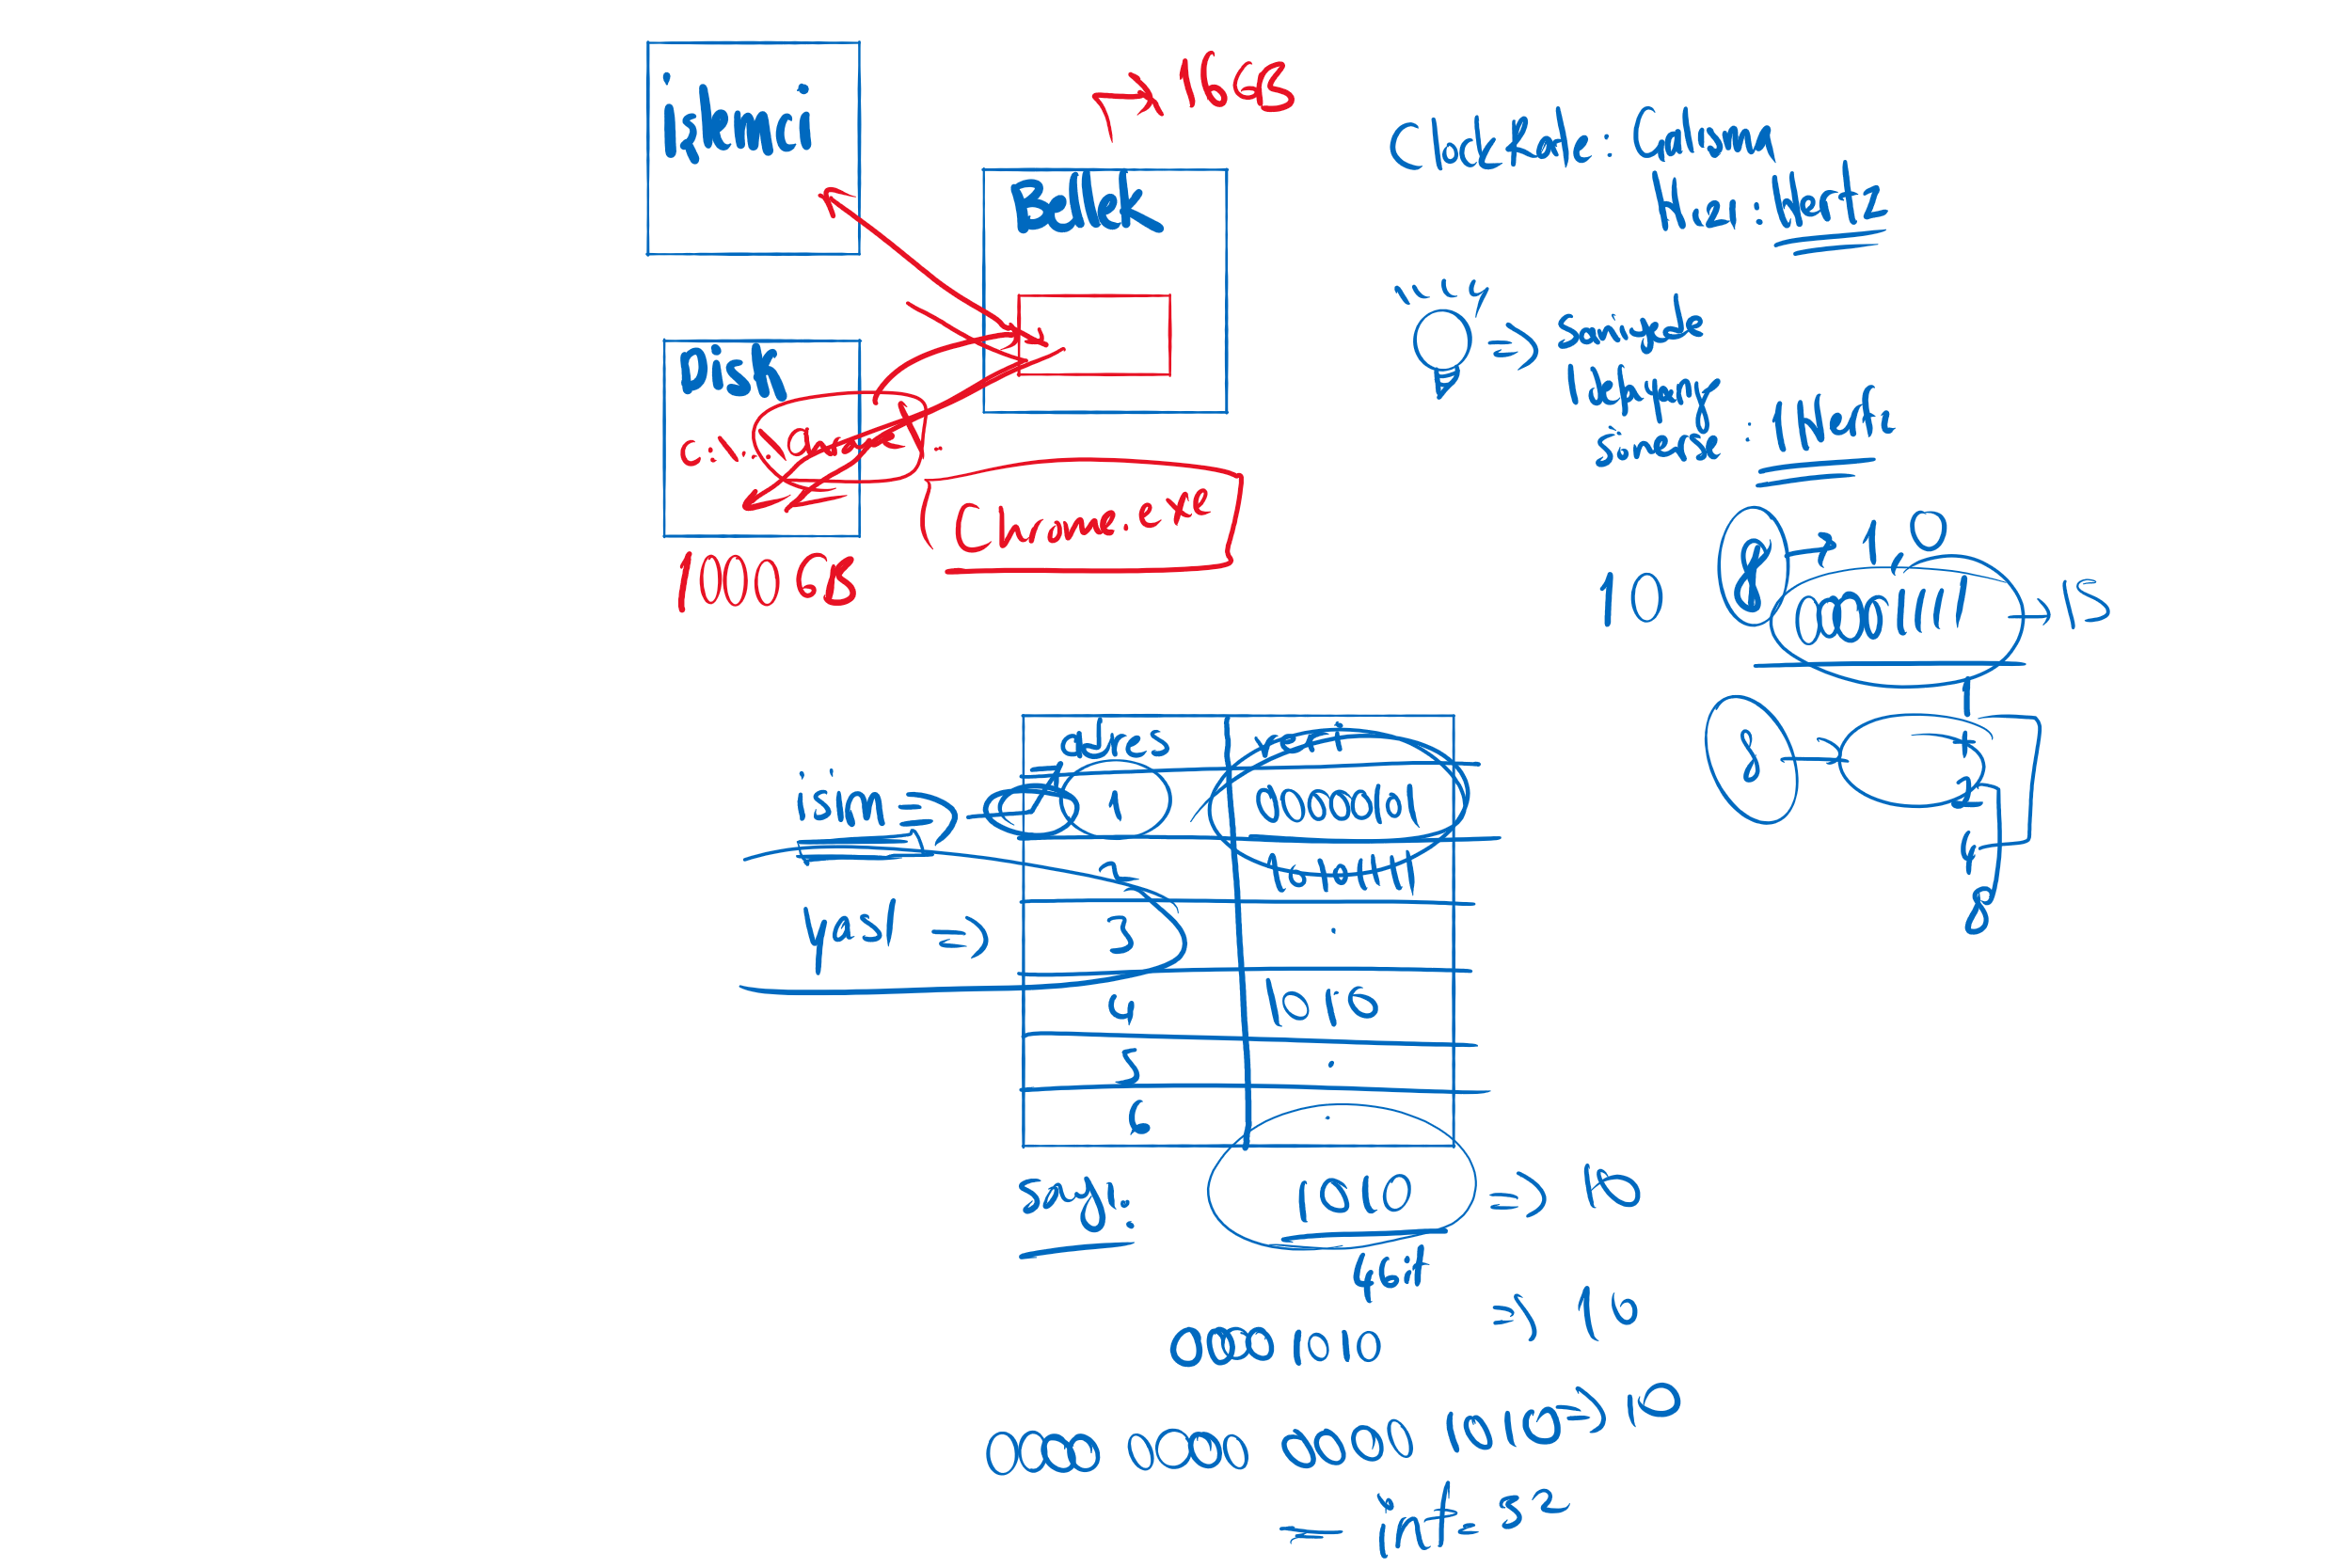 işlemci
16GB
Bellek
Disk
C:\..\Chrome..
1000GB
Chrome.exe
Clock Rate: Çalışma
Hızı: Hertz
=> saniyede
1 defa yanıp
sönerse : 1 Hertz
10
8 → 1 0
00001111 → 15
8 →
1
2
4
8
adres veri
isim => 1 00000101
2
yaşı => 3 .
4 1010
5 .
6 .
sayı: 1010 => 10
4 Bit
00001010 => 10
0000 0000 0000 1010 => 10
= int32